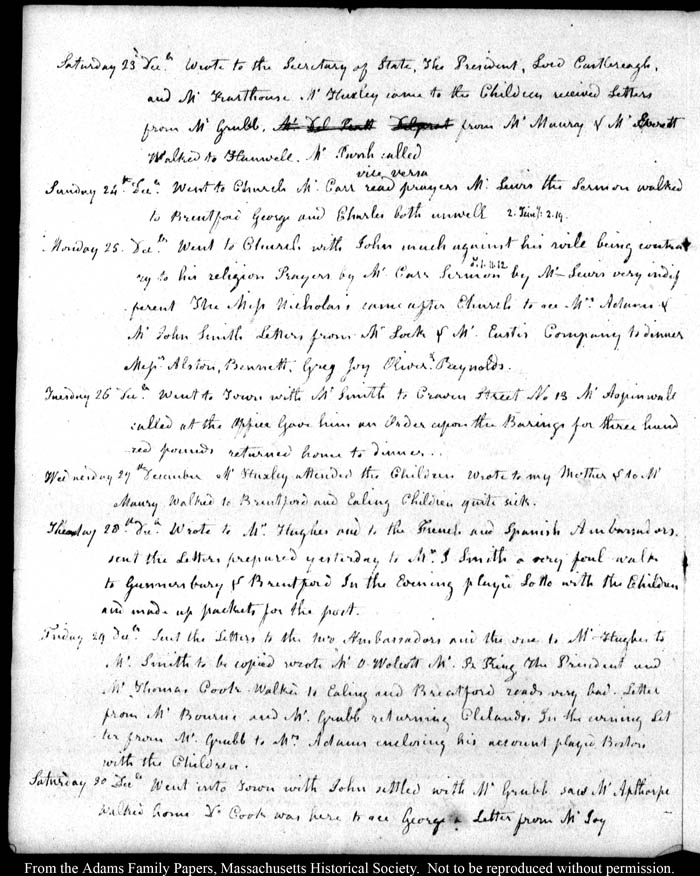 Saturday 23d Decr. Wrote to the Secretary of State, The President, Lord Castlereagh,
and Mr Mr Huxley came to the Children received Letters
from Mr Grubb, from Mr Maury & Mr Everett
Walked to Hanwell. Mr called
vice versa
Sunday 24th. Decr. Went to Church Mr. Carr read prayers Mr Lewis the Sermon walked
to Brentford George and Charles both unwell 2. Timy: 2. 19.
Monday 25. Decbr. Went to Church with John much against his will being contra
ry to his religion Prayers by Mr Carr Sermon by Mr Lewis very indif
ferent The Miss Nicholas's came after Church to see Mrs Adams &
Mr John Smith Letters from Mr Lock & Mr. Eustis Company to dinner
Messrs Alston, Bennett, Greg Joy Oliver & Reynolds.
Tuesday 26 Decr Went to Town with Mr Smith to Craven Street No 13 Mr Aspinwall
called at the Office Gave him an Order upon the Barings for three hund
red pounds returned home to dinner..
Wednesday 27th December Mr Huxley attended the Children Wrote to my Mother & to Mr
Maury Walked to Brentford and Ealing Children quite sick.
Thursday 28th Decr. Wrote to Mr. Hughes and to the French and Spanish Ambassadors.
sent the Letters prepared yesterday to Mr J Smith a very foul walk
to Gunnersbury & Brentford In the Evening played Lotto with the Children
and made up packets for the post.
Friday 29 Decbr. Sent the Letters to the two Ambassadors and the one to Mr Hughes to
Mr. Smith to be copied wrote Mr O. Wolcott Mr. R King The President and
Mr Thomas Cook Walked to Ealing and Brentford roads very bad. Letter
from Mr Bourne and Mr. Grubb returning Clelands. In the evening Let
ter from Mr. Grubb to Mrs Adams enclosing his account played Boston
with the Children.
Saturday 30 Decbr Went into Town with John settled with Mr Grubb saw Mr Apthorpe
walked home Dr Cook was here to see George a Letter from Mr Joy
From the Adams Family Papers, Massachusetts Historical Society. Not to be reproduced without permission.